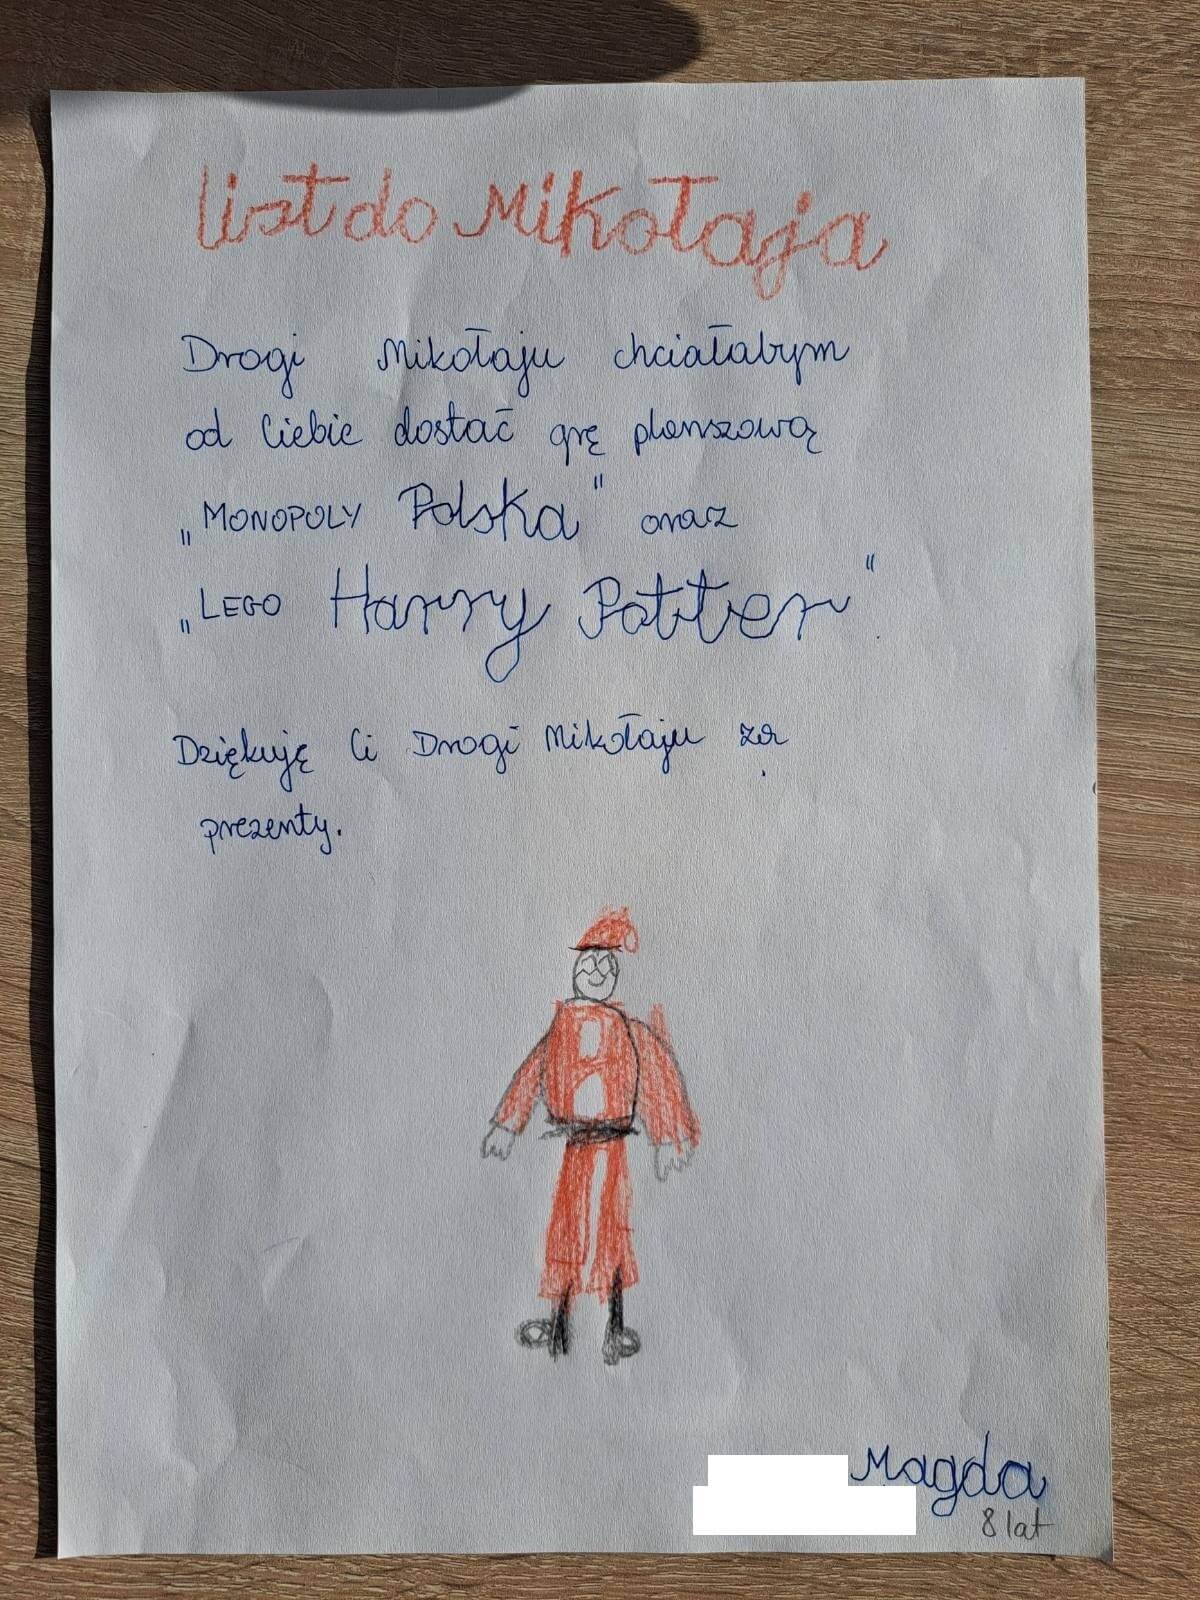 list do Mikołaja
Drogi Mikołaju chciałabym
od Ciebie dostać grę planszową
„MONOPOLY Polska" oraz
„LEGO Harry Potter".
Dziękuję Ci Drogi Mikołaju za
prezenty.
Magda
8 lat